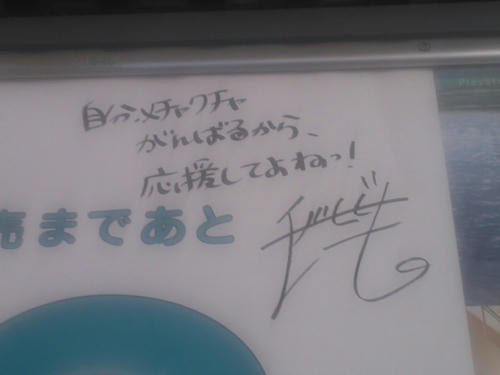 自分メチャクチャ
がんばるから、
応援してよねっ!
売まであと
PlaySt